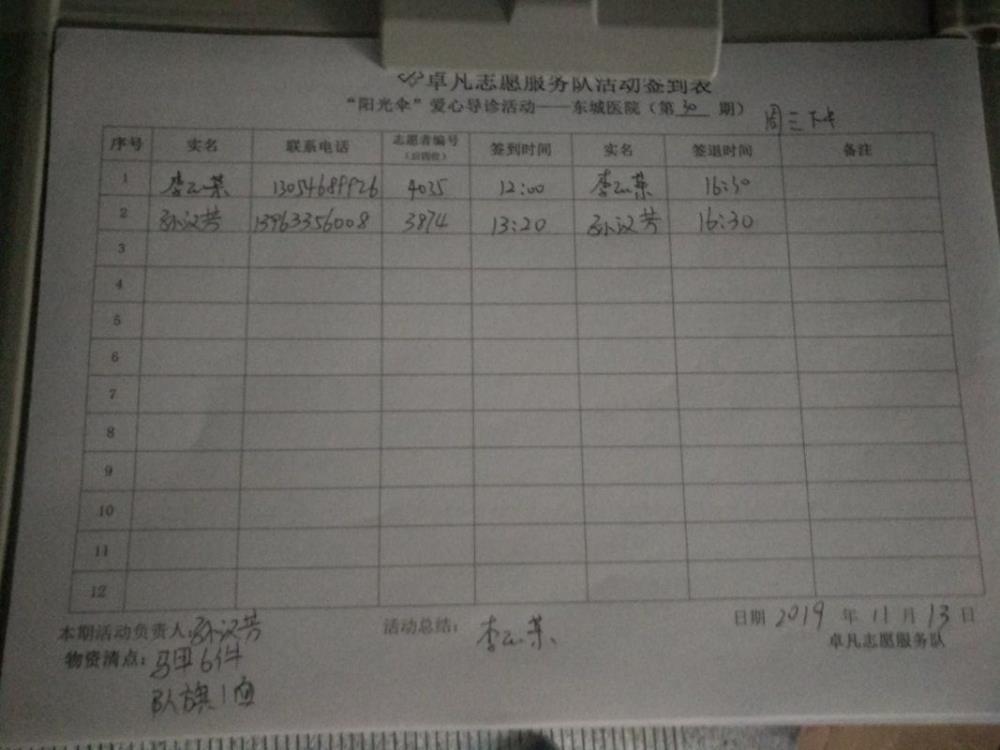 卓凡志愿服务队活动签到表
“阳光伞”爱心导诊活动——东城医院（第 30 期）
周三下午
序号 实名 联系电话 志愿者编号（后四位） 签到时间 实名 签退时间 备注
1 李 英 13054689926 4035 12:00 李 英 16:30
2 孙汉芳 13963356008 3874 13:20 孙汉芳 16:30
3
4
5
6
7
8
9
10
11
12
本期活动负责人：孙汉芳 活动总结：李 英 日期 2019 年 11 月 13 日
卓凡志愿服务队
物资清点：马甲6件
队旗1面